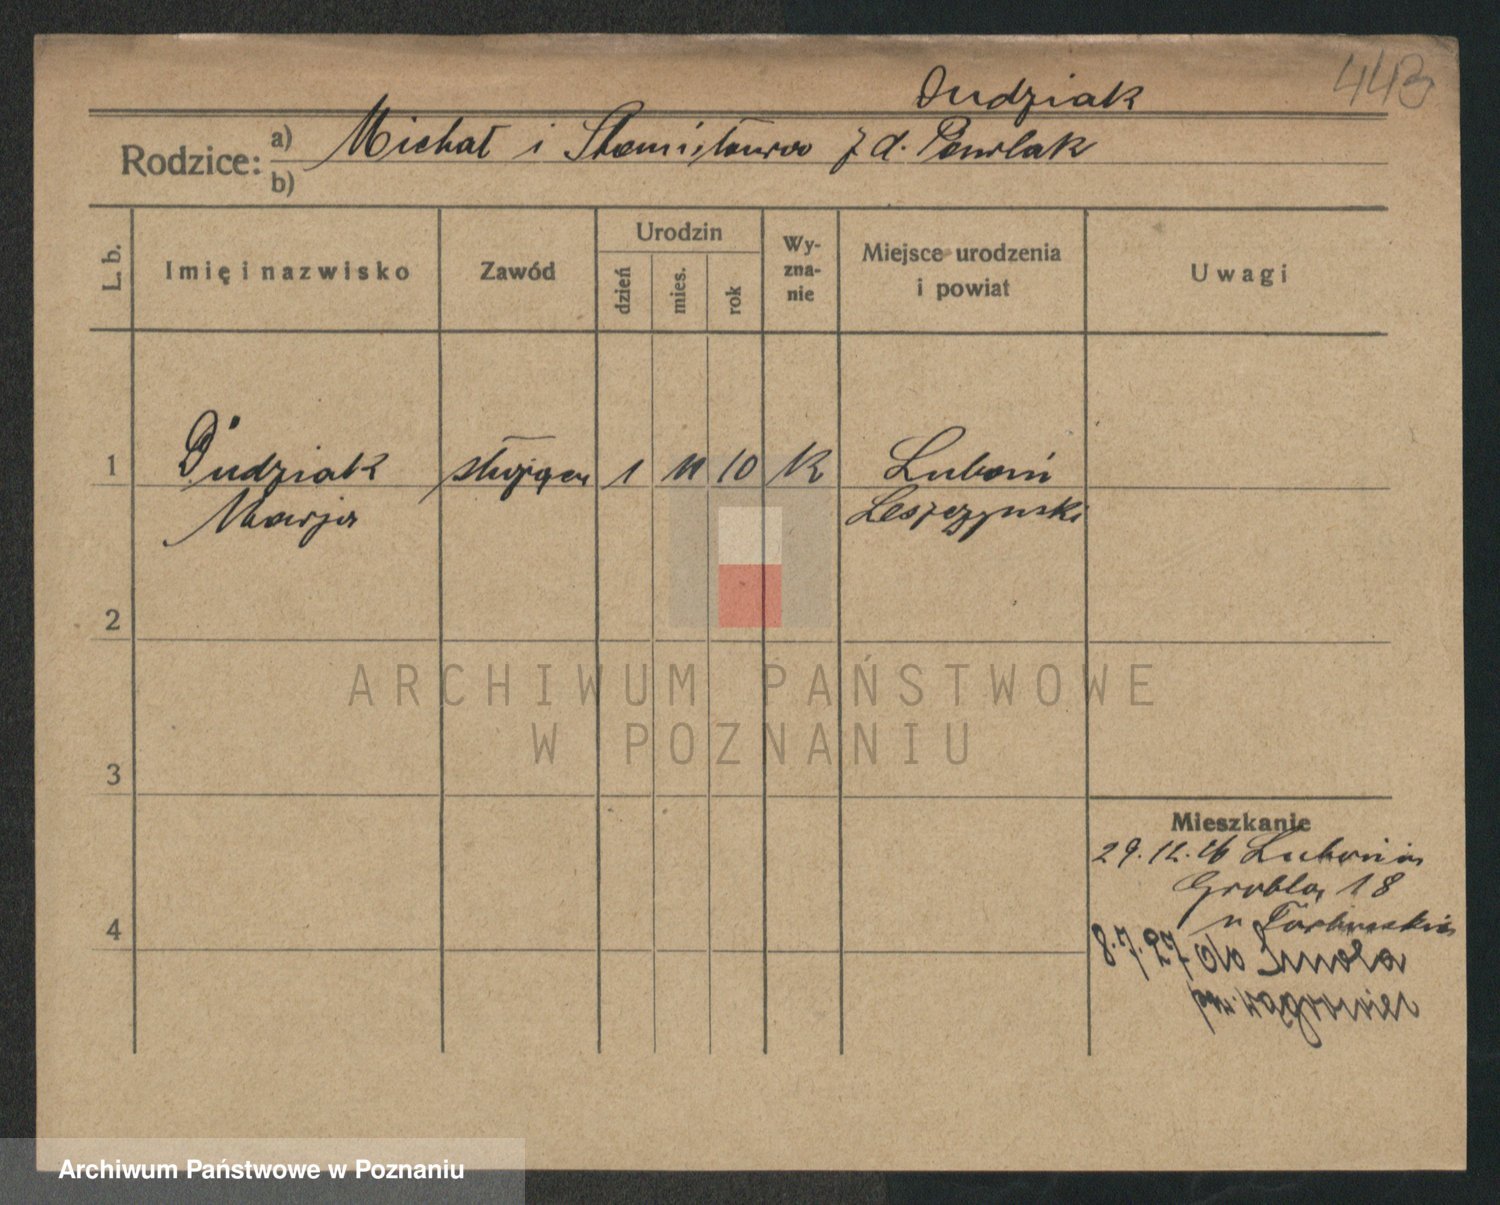 443
Dudziak
Rodzice: a) Michał i Stanisława z d. Pawlak
b)
L. b. Imię i nazwisko Zawód Urodzin dzień mies. rok Wyznanie Miejsce urodzenia i powiat Uwagi
1 Dudziak służąca 1 11 10 K Luboń
Marja Leszczyński
2
3
4
Mieszkanie
29.12.26 Lubonia
Grobla 18
u
8.7.27 do
pow. Wągrowiec
ARCHIWUM PAŃSTWOWE
W POZNANIU
Archiwum Państwowe w Poznaniu